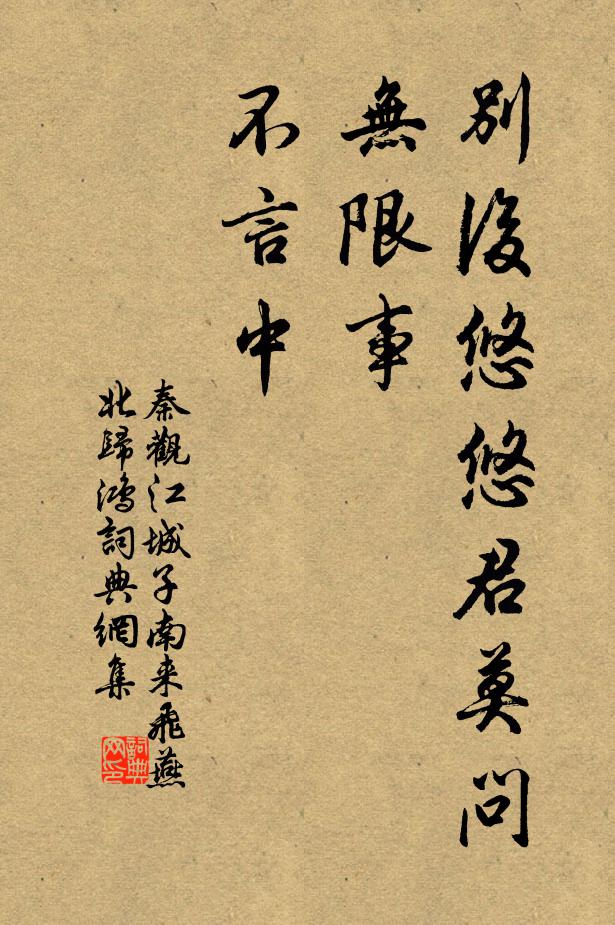 別後悠悠君莫問
無限事
不言中
秦觀江城子南来飛燕
北歸鴻詞典網集
詞典
网印